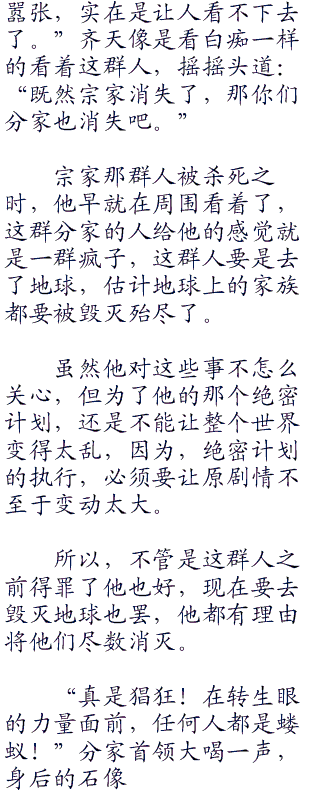 嚣张，实在是让人看不下去
了。”齐天像是看白痴一样
的看着这群人，摇摇头道：
“既然宗家消失了，那你们
分家也消失吧。”
宗家那群人被杀死之
时，他早就在周围看着了，
这群分家的人给他的感觉就
是一群疯子，这群人要是去
了地球，估计地球上的家族
都要被毁灭殆尽了。
虽然他对这些事不怎么
关心，但为了他的那个绝密
计划，还是不能让整个世界
变得太乱，因为，绝密计划
的执行，必须要让原剧情不
至于变动太大。
所以，不管是这群人之
前得罪了他也好，现在要去
毁灭地球也罢，他都有理由
将他们尽数消灭。
“真是猖狂！在转生眼
的力量面前，任何人都是蝼
蚁！”分家首领大喝一声，
身后的石像